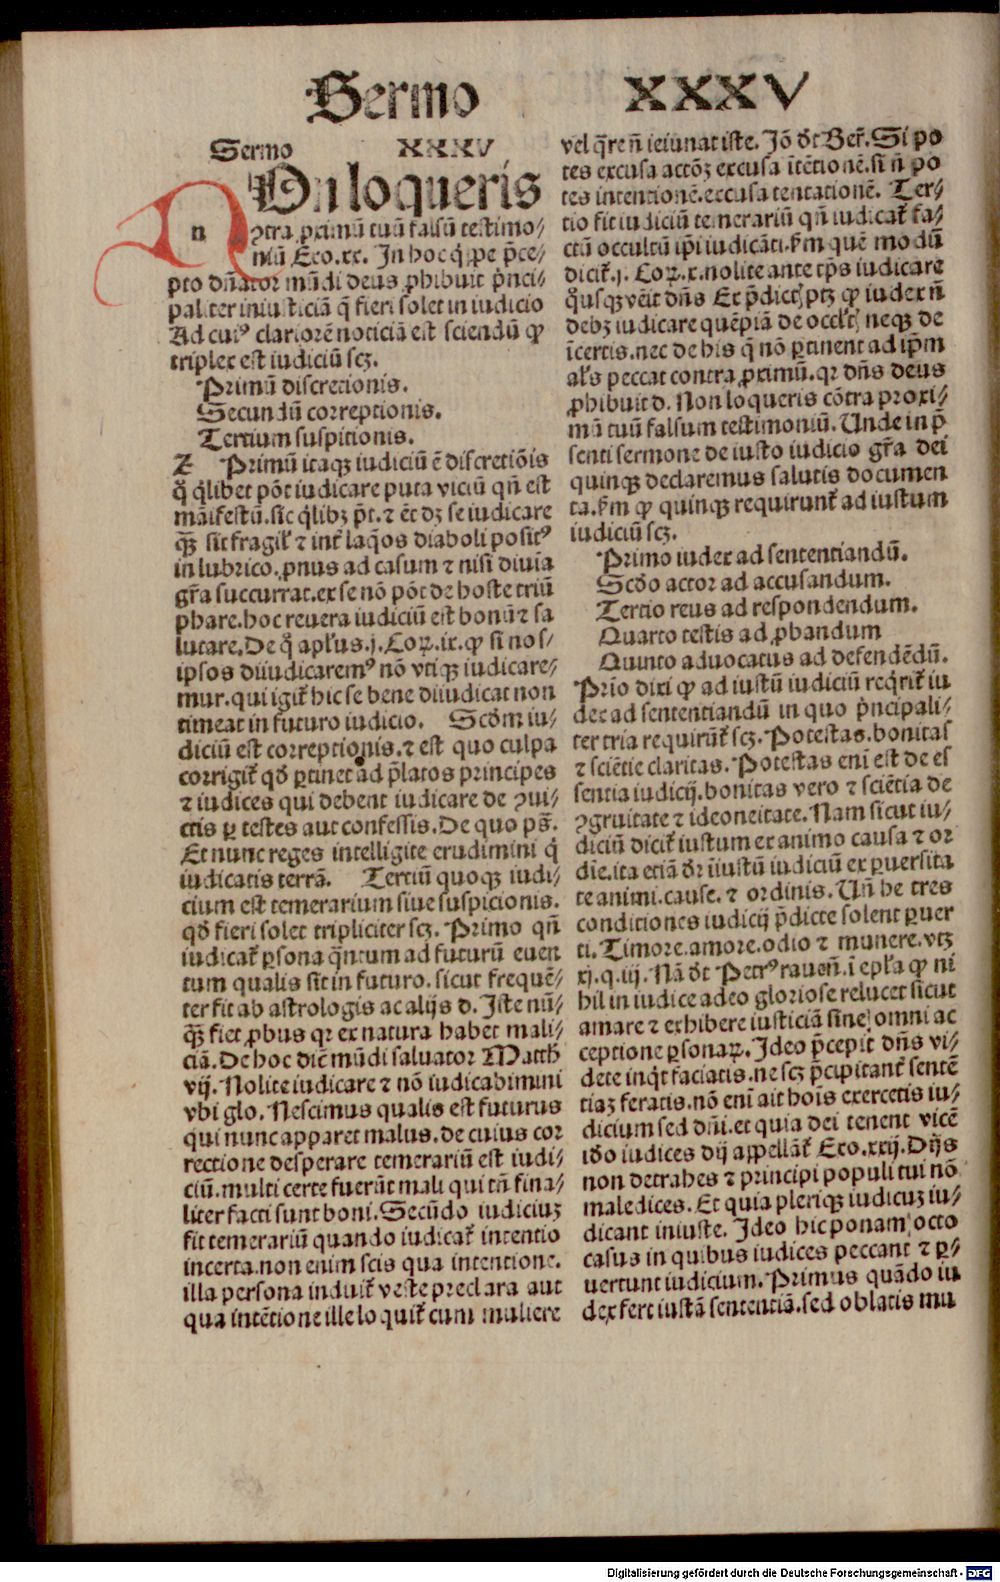 Sermo XXXV
Sermo XXXV
On loqueris
n ꝯtra ꝓximū tuū falsū testimo⸗
niū Exo.xx. In hoc q̇ppe p̄ce⸗
pto dn̄ator mūdi deus ꝓhibuit pͥnci⸗
paliter iniusticiā q̄ fieri solet in iudicio
Ad cuiꝰ clariorē noticiā est sciendū ꝙ
triplex est iudiciū scꝫ.
Primū discretionis.
Secundū correptionis.
Tertium suspitionis.
⁊ Primū itaqꝫ iudiciū ē discretiōis
q̊ q̇libet pōt iudicare puta viciū qn̄ est
māifestū. sic q̇libꝫ pt̄. ⁊ ēt dꝫ se iudicare
qꝫ sit fragił ⁊ int̄ laq̊os diaboli positꝰ
in lubrico. ꝓnus ad casum ⁊ nisi diuīa
gr̄a succurrat. ex se nō pōt de hoste triū
phare. hoc reuera iudiciū est bonū ⁊ sa
lutare. De q̊ apłus .j. Coꝝ. ix. ꝙ si nos⸗
ipsos diiudicaremꝰ nō vtiqꝫ iudicare⸗
mur. qui igit̄ hic se bene diiudicat non
timeat in futuro iudicio. Scd̄m iu⸗
diciū est correptionis. ⁊ est quo culpa
corrigit̄ qd̄ ꝑtinet ad p̄latos principes
⁊ iudices qui debent iudicare de ꝯui⸗
ctis ꝑ testes aut confessis. De quo ps̄.
Et nunc reges intelligite erudimini q̇
iudicatis terrā. Tertiū quoqꝫ iudi⸗
cium est temerarium siue suspicionis.
qd̄ fieri solet tripliciter scꝫ. Primo qn̄
iudicat̄ ꝑsona q̄ntum ad futurū euen
tum qualis sit in futuro. sicut frequē⸗
ter fit ab astrologis ac alijs d. Iste nū⸗
qꝫ fiet ꝓbus qꝛ ex natura habet mali⸗
ciā. De hoc diē mūdi saluator Matth̄
vij. Nolite iudicare ⁊ nō iudicabimini
vbi glo. Nescimus qualis est futurus
qui nunc apparet malus. de cuius cor
rectione desperare temerariū est iudi⸗
ciū. multi certe fuerūt mali qui tn̄ fina⸗
liter facti sunt boni. Secūdo iudiciuꝫ
fit temerariū quando iudicat̄ intentio
incerta. non enim scis qua intentione.
illa persona induit̄ veste preclara aut
qua intētione ille loquit̄ cum muliere
vel q̄re n̄ ieiunat iste. Iō dt̄ Ber̄. Si po
tes excusa actōꝫ excusa ītētionē. si n̄ po
tes intentionē. excusa tentationē. Ter⸗
tio fit iudiciū temerariū qn̄ iudicat̄ fa⸗
ctū occultū ip̄i iudicāti. ẜm quē modū
dicit̄ .j. Coꝝ. x. nolite ante tp̄s iudicare
q̊usqꝫ veīt dn̄s Ex p̄dictꝭ ptꝫ ꝙ iudex n̄
debꝫ iudicare quēpiā de occłtꝭ neqꝫ de
īcertis. nec de his q̄ nō ꝑtinent ad ip̄m
ałs peccat contra ꝓximū. qꝛ dn̄s deus
ꝓhibuit d. Non loqueris cōtra proxi⸗
mū tuū falsum testimoniū. Unde in p̄
senti sermone de iusto iudicio gr̄a dei
quinqꝫ declaremus salutis documen
ta. ẜm ꝙ quinqꝫ requirunt̄ ad iustum
iudiciū scꝫ.
Primo iudex ad sententiandū.
Scd̄o actor ad accusandum.
Tertio reus ad respondendum.
Quarto testis ad ꝓbandum
Quinto aduocatus ad defendēdū.
Prīo dixi ꝙ ad iustū iudiciū req̇rit̄ iu
dex ad sententiandū in quo pͥncipali⸗
ter tria requirūt̄ scꝫ. Potestas. bonitas
⁊ sciētie claritas. Potestas eni est de es
sentia iudicij. bonitas vero ⁊ sciētia de
ꝯgruitate ⁊ ideoneitate. Nam sicut iu⸗
diciū dicit̄ iustum ex animo causa ⁊ or
dīe. ita etiā dr̄ īiustū iudiciū ex ꝑuersita
te animi. cause. ⁊ ordinis. Un̄ he tres
conditiones iudicij p̄dicte solent ꝑuer
ti. Timore. amore. odio ⁊ munere. vtꝫ
xj. q. iij. Nā dt̄ Petrꝰ rauen̄. ī epła ꝙ ni
hil in iudice adeo gloriose relucet sicut
amare ⁊ exhibere iusticiā sine omni ac
ceptione ꝑsonaꝝ. Ideo p̄cepit dn̄s vi⸗
dete inq̇t faciatis. ne scꝫ p̄cipitant̄ sentē
tiaꝫ feratis. nō eni ait hoīs exercetis iu⸗
dicium sed dn̄i. et quia dei tenent vicē
id̄o iudices dij appellāt̄ Exo. xxij. Dijs
non detrahes ⁊ principi populi tui nō
maledices. Et quia pleriqꝫ iudicuꝫ iu⸗
dicant iniuste. Ideo hic ponam octo
casus in quibus iudices peccant ⁊ ꝑ⸗
uertunt iudicium. Primus quādo iu
dex fert iustā sententiā. sed oblatis mu
Digitalisierung gefördert durch die Deutsche Forschungsgemeinschaft - DFG